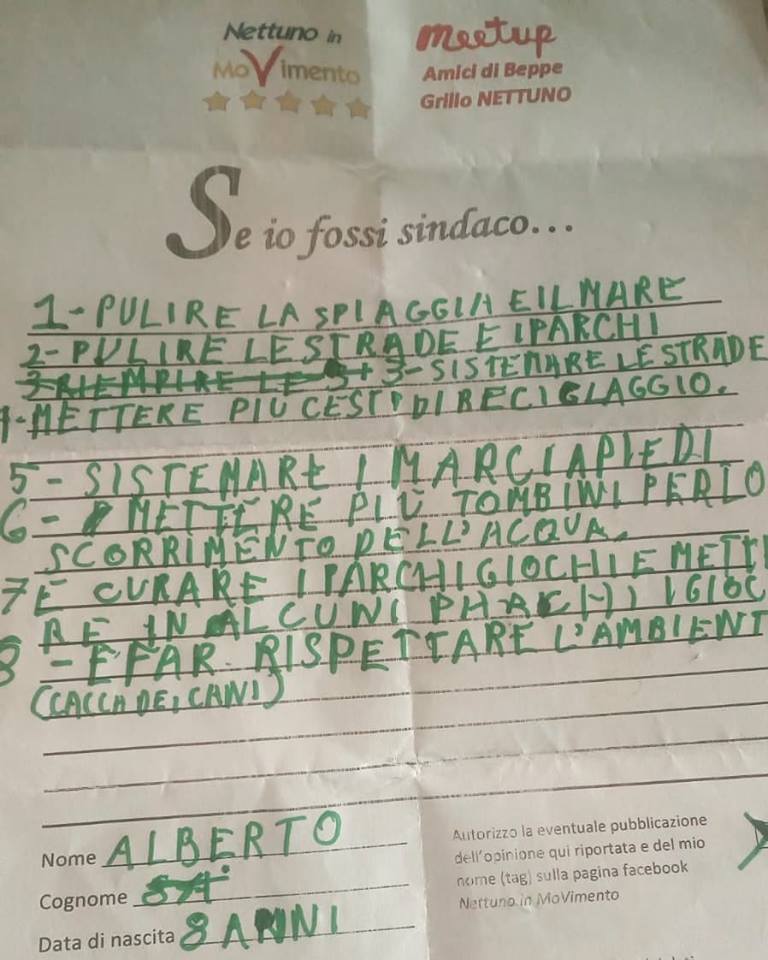 Nettuno in
MoVimento
meetup
Amici di Beppe
Grillo NETTUNO
Se io fossi sindaco...
1- PULIRE LA SPIAGGIA E IL MARE
2- PULIRE LE STRADE E I PARCHI
3 RIEMPIRE LE 3- SISTEMARE LE STRADE
4-METTERE PIU CESTI DI RECICLAGGIO.
5- SISTEMARE I MARCIAPIEDI
6- METTERE PIÙ TOMBINI PER LO
SCORRIMENTO DELL'ACQUA.
7 E CURARE I PARCHI GIOCHI E METTE
RE IN ALCUNI PHARCHI I GIOC
8 - E FAR RISPETTARE L'AMBIENT
(CACCA DEI CANI)
Nome ALBERTO
Cognome
Data di nascita 8 ANNI
Autorizzo la eventuale pubblicazione
dell'opinione qui riportata e del mio
nome (tag) sulla pagina facebook
Nettuno in MoVimento